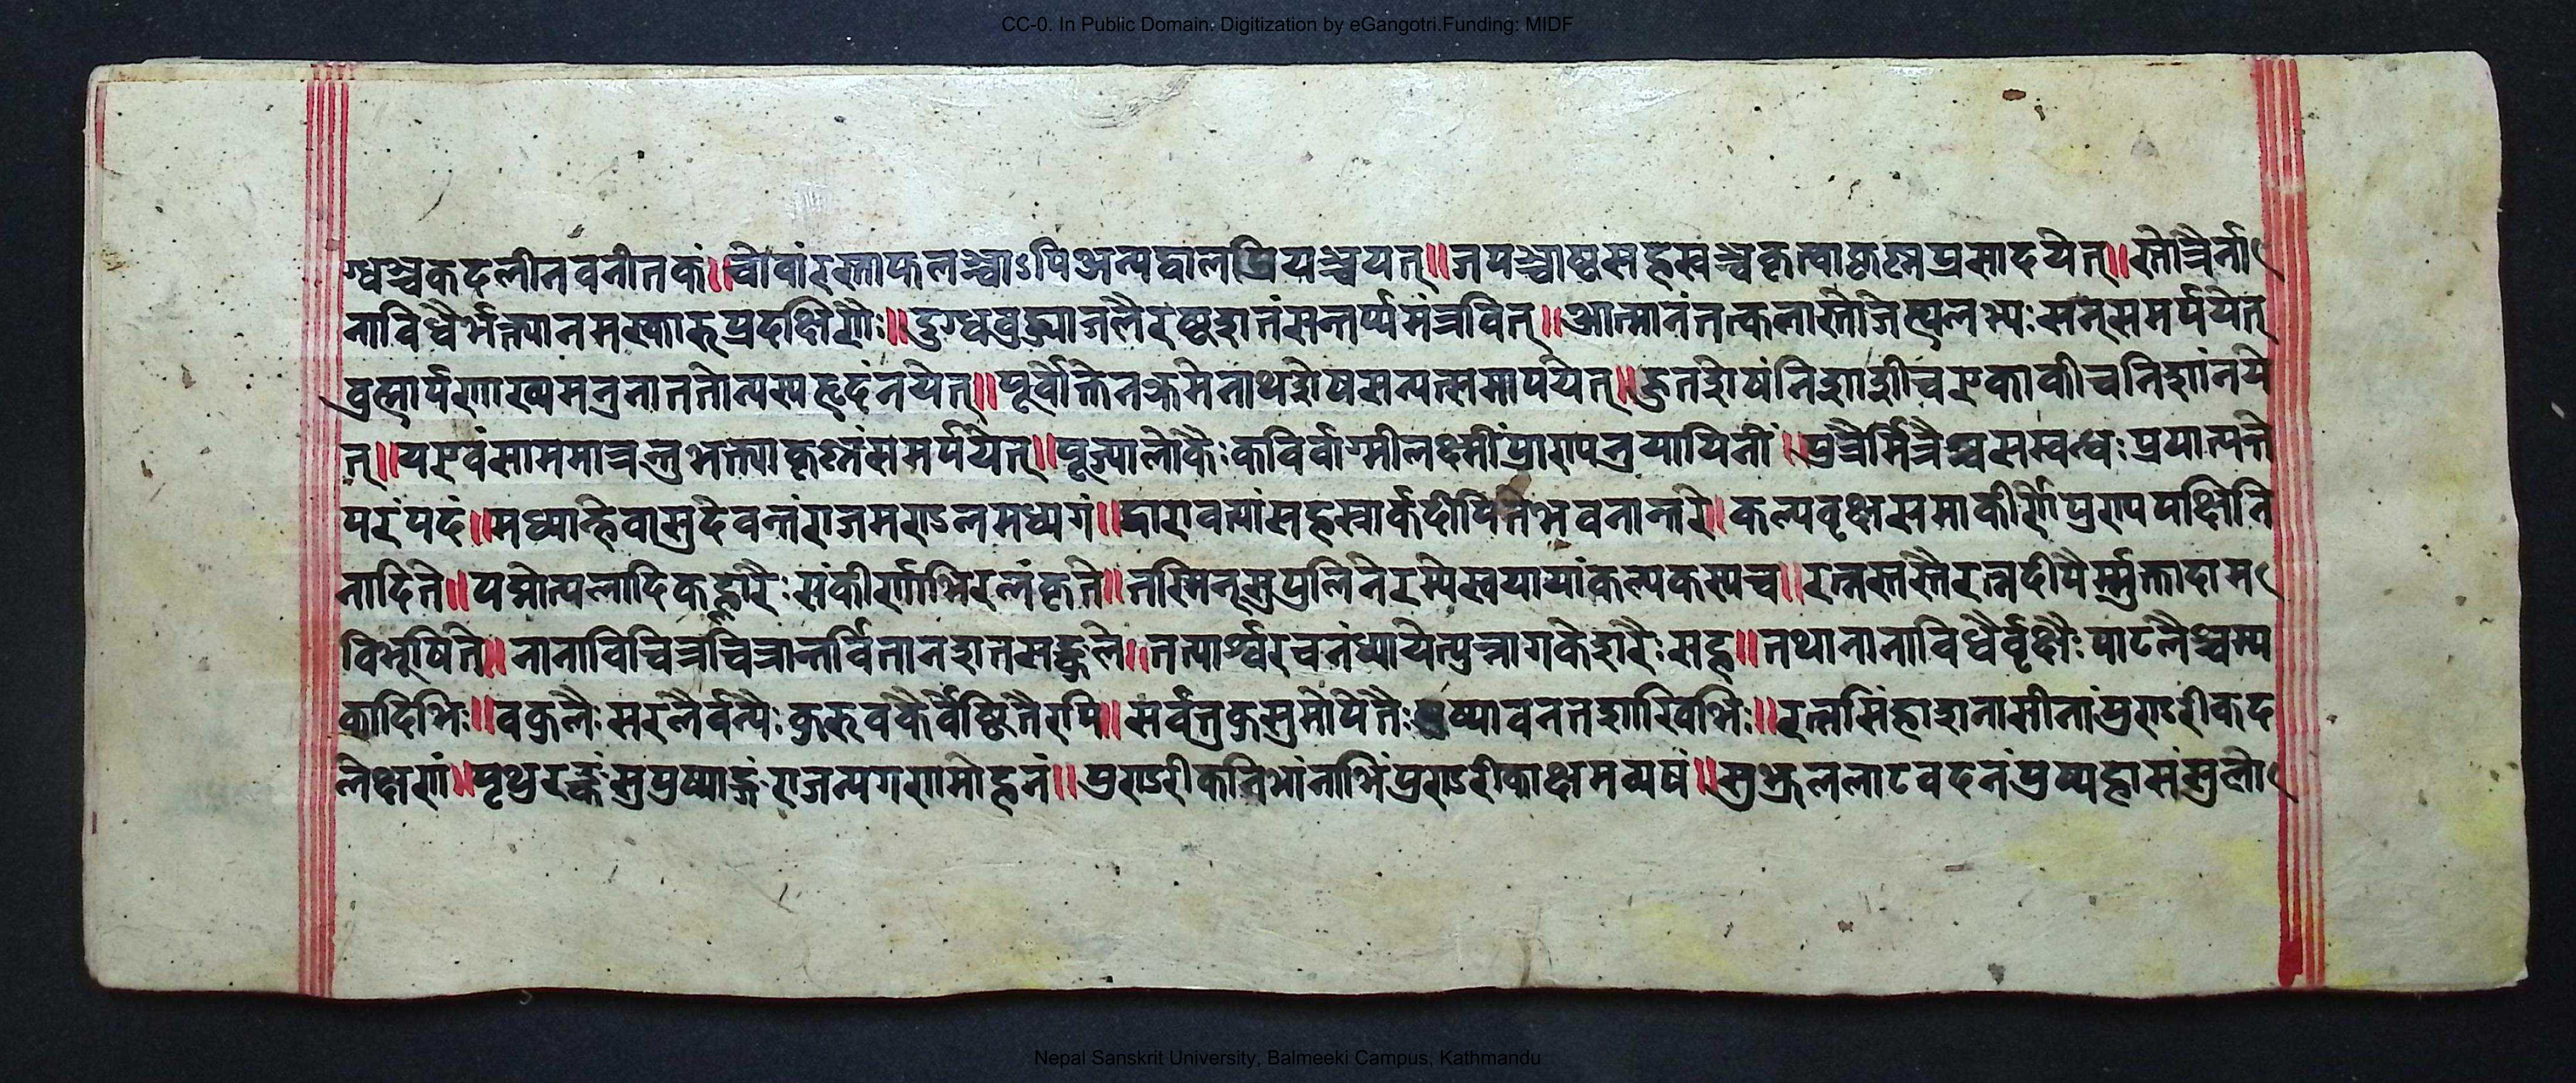 CC-0. In Public Domain. Digitization by eGangotri.Funding: MIDF
ग्धञ्चकदलीनवनीतकं॥ फलञ्चाऽपिअन्यद्बालप्रियञ्चयत्॥जपञ्चाष्टसहस्रञ्चकृत्वाकृष्णप्रसादयेत्॥स्तोत्रैर्ना
नाविधैर्भक्त्यानमस्कारुप्रदक्षिणैः॥दुग्धवुद्ध्याजलैरष्टशतंसन्तर्प्यमंत्रवित्॥आत्मानं सन्समर्पयेत्
व्रह्मार्पणाख्यमनुनाततोन्यस्यहृदंनयेत्॥पूर्वोक्तेनक्रमेनाथशेषसन्यत्समार्पयेत्॥हुतशेषंनिशाशीचएकाकीचनिशांनये
त्॥यएवंसाममात्रन्तुभक्त्याकृष्णंसमर्पयेत्॥पूज्यालोकैःकविर्वाग्मीलक्ष्मीं ॥पुत्रैर्मित्रैश्चसम्वन्धःप्रयात्यन्ते
परंपदं॥मध्यान्हेवासुदेवन्तंराजमण्डलमध्यगं॥द्वारावत्यांसहस्रार्कदीपितेभवनान्तरे॥कल्पवृक्षसमाकीर्णेपुण्यपक्षिनि
नादिते॥पद्मोत्पलादिकह्लारैःसंकीर्णाभिरलंकृते॥तस्मिन्सुपुलिनेरम्येस्वयायांकल्पकस्यच॥रत्नस्तस्तैरत्नदीपैर्मुक्तादाम
विभूषिते॥नानाविचित्रचित्रान्तर्वितानशतसङ्कुले॥तत्पार्श्वरचनंध्यायेत्पुन्नागकेशरैःसह॥तथानानाविधैर्वृक्षैःपाटलैश्चम्प
कादिभिः॥वकुलैःसरलैर्वन्यैःकुरुवकैर्वेष्टितैरपि॥सर्वंतुकुसुमोपेतैःपुष्पावनतशाखिभिः॥रत्नसिंहाशनासीनंपुण्डरीकद
लेक्षणं॥पृथुरङ्कंसुपुष्पाङ्गंराजन्यगणमोहनं॥पुण्डरीकनिभांनाभिंपुण्डरीकाक्षमव्ययं॥सुभ्रूललाटवदनंपुष्पहासंसुलो
Nepal Sanskrit University, Balmeeki Campus, Kathmandu